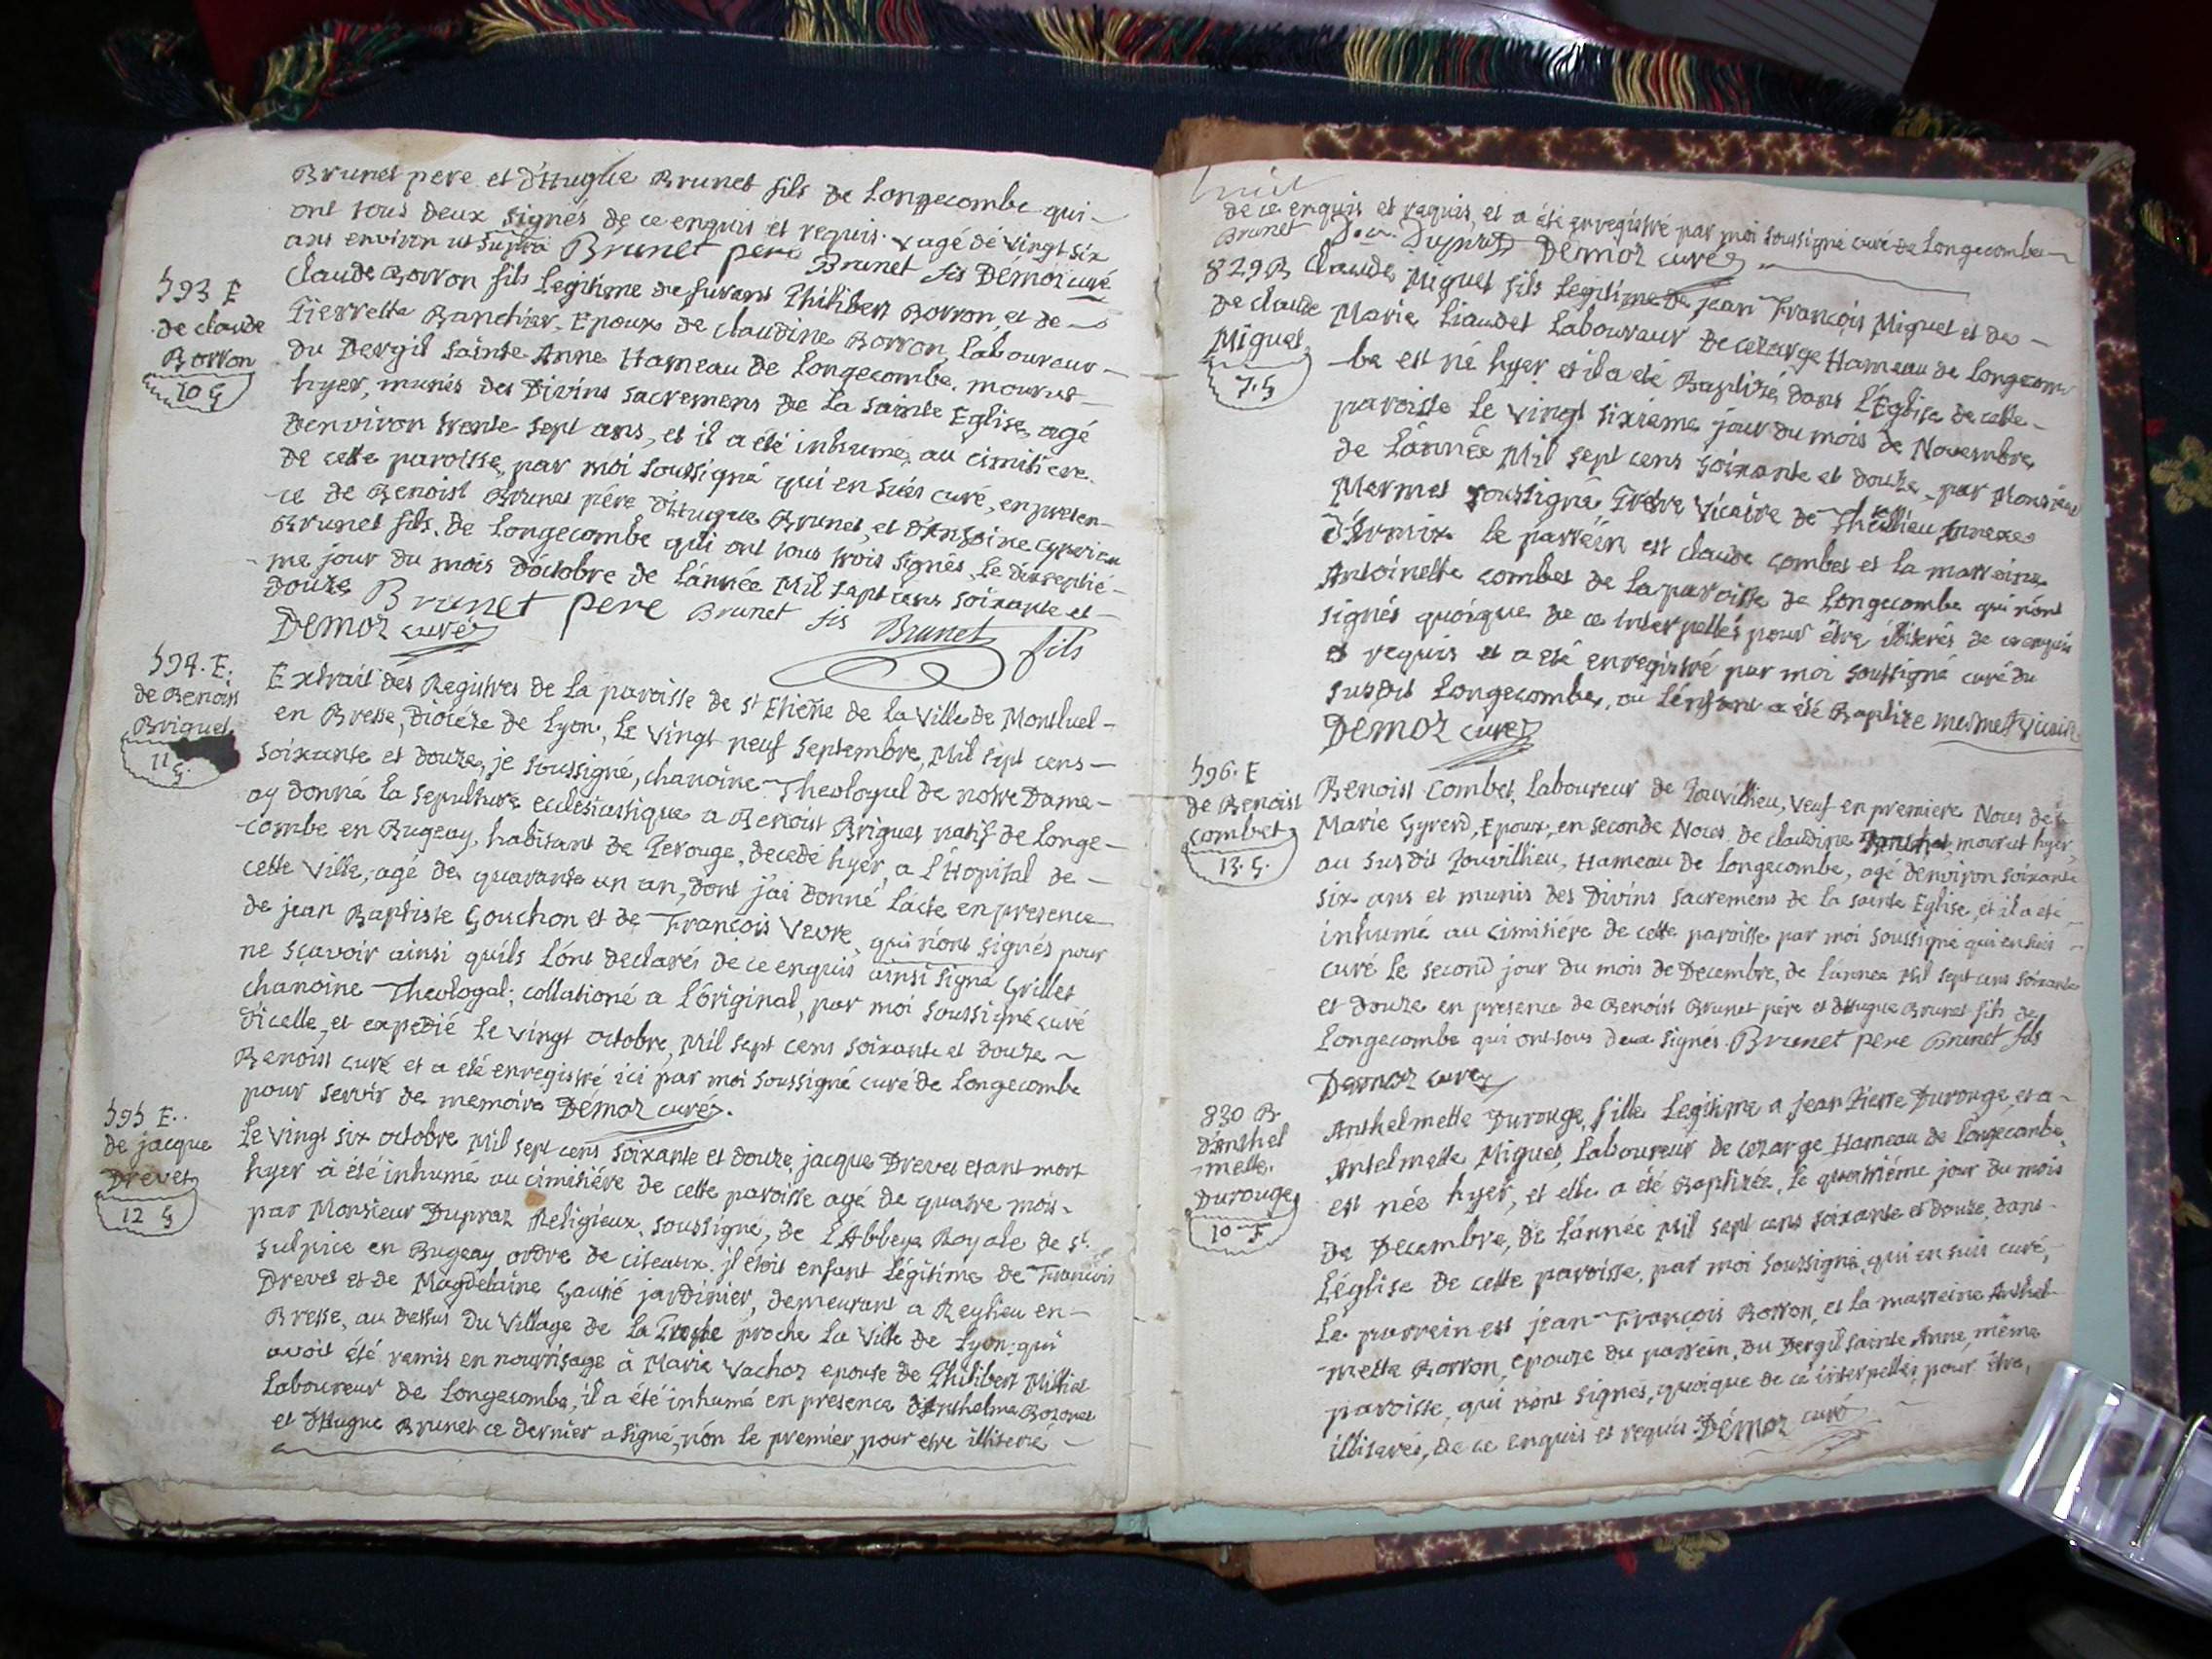 Brunet pere et d'Hugue Brunet fils de Longecombe qui
ont tous deux signés de ce enquis et requis. agé de vingt six
ans environ ut supra Brunet pere Brunet fis Démoz curé
593 E
de claude
Borron
10 G
claude Borron fils legitime de furent Philibert Borron, et de
Pierrette Banchier, Epoux de claudine Borron, laboureur
du Dergil sainte Anne Hameau de Longecombe, mourut
hyer, munis des Divins sacremens de la sainte Eglise, agé
denviron trente sept ans, et il a été inhumé au cimitiere
de cette paroisse, par moi soussigné qui en suis curé, en presen-
-ce de Benoist Brunet pére d'Hugue Brunet, et d'Antoine cyprien
Brunet fils, de Longecombe qui ont tous trois signés, Le dixseptié-
-me jour du mois d'octobre de Lánnée Mil sept cens soixante et
douze Brunet pere Brunet fis Brunet fils
Demoz curé
594. E.
de Benoist
Briguet
11 G.
Extrait des Registres de la paroisse de st Etieñe de la Ville de Montluel
en Bresse, diocéze de Lyon, Le vingt neuf septembre, Mil sept cens
soixante et douze, je soussigné, chanoine Theologal de notre Dame
ay donné la sepulture ecclésiastique a Benoist Briguet natif de Longe-
-combe en Bugeay, habitant de Perouge, decedé hyer, a l'Hopital de
cette Ville, agé de quarante un an, dont j'ai donné lácte en presence
de jean Baptiste Gouchon et de François Vevre, qui n'ont signés pour
ne sçavoir ainsi quils lónt declarés de ce enquis ainsi signé Grillet
chanoine Theologal; collationé a lóriginal, par moi soussigné curé
dicelle, et expedié le vingt octobre, Mil sept cens soixante et douze
Benoist curé et a été enregistré ici par moi soussigné curé de Longecombe
pour servir de memoire Démoz curé.
595 E..
de jacque
Drevet
12 G
Le vingt six octobre Mil sept cens soixante et douze, jacque Drevet etant mort
hyer à été inhumé au cimitiére de cette paroisse agé de quatre mois
par Monsieur Dupraz Religieux, soussigné, de l'Abbeye Royale de st.
sulpice en Bugeay ordre de citeaux. jl étoit enfant légitime de François
Drevet et de Magdelaine Gautié jardinier, demeurant a Reylieu en
Bresse, au dessus du Village de la proche la Ville de Lyon. qui
avoit été remis en nourrisage à Marie Vachoz epouse de Philibert Milliet
Laboureur de Longecombe, il a été inhumé en presence d'Anthelme Bozonet
et d'Hugue Brunet ce dernier a signé, nón le premier, pour etre illiteré
huit
de ce enquis et requis, et a été enregistré par moi soussigné curé de Longecombe
Brunet Dupraz Demoz curé
829 B
de claude
Miguet
7. G
claude Miguet fils legitime de jean François Miguet et de
Marie Liaudet Laboureur de cezarge Hameau de Longecom-
-be est né hyer et il a été Baptizé dans l'Église de cette
paroisse le vingt sixieme jour du mois de Novembre
de Lánnée Mil sept cens soixante et douze, par Monsieur
Mermet soussigné Prétre Vicaire de Thézillieu Annexe
d'Armix le parrein est claude combet et la marreine
Antoinette combet de la paroisse de Longecombe qui nónt
signés quoique de ce interpellés pour être illiterés de ce enquis
et requis et a été enregistré par moi soussigné curé du
susdit Longecombe, ou lénfant a été Baptize mermet vicaire
Démoz curé
596. E
de Benoist
combet
13. G.
Benoist Combet, laboureur de Jouvillieu, veuf en premiere Noces de
Marie Gyrerd, Epoux, en seconde Noces, de claudine mourut hyer,
au susdit Jouvillieu, Hameau de Longecombe, agé denviron soixante
six ans et munis des Divins sacremens de la sainte Eglise, et il a été
inhumé au cimitiére de cette paroisse par moi soussigné qui en suis
curé le second jour du mois de Decembre, de lánnée Mil sept cens soixante
et douze en presence de Benoist Brunet pére et d'Hugue Brunet fils de
Longecombe qui ont tous deux signés. Brunet pere Brunet fils
Demoz curé
830 B
d'Anthel
-mette
Durouge
10 F
Anthelmette Durouge, fille Legitime a jean Pierre Durouge, et a
Antelmette Miguet, Laboureur de cezarge Hameau de Longecombe,
est née hyer, et elle a été Baptizée, le quatriéme jour du mois
de Decembre, de Lánnée Mil sept cens soixante et douze, dans
Léglise de cette paroisse, par moi soussigné, qui en suis curé,
Le parrein est jean François Borron, et la marreine Anthel-
-mette Borron, epouze du parrein, du Dergil sainte Anne, même
paroisse, qui nónt signés, quoique de ce interpellés, pour être,
illiterés, de ce enquis et requis Démoz curé